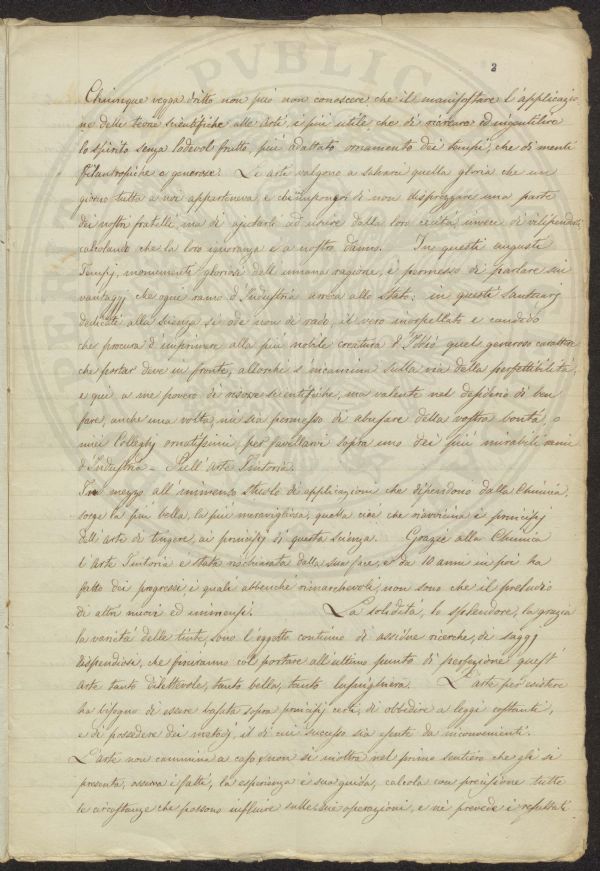 2
Chiunque vegga dritto non può non conoscere che il manifestare l'applicazio
ne delle teorie scientifiche alle Arti, è più utile che di ricercare ed ingentilire
lo spirito senza lodevol frutto più adattato ornamento dei tempi, che di menti
filantropiche e generose. Le arti valgono a salvarci quella gloria che un
giorno tutta a noi apparteneva, e ch'imponerci di non disprezzare una parte
dei nostri fratelli, ma di ajutarli ad uscire dalla loro cecità invece di vilipenderli
calcolando che la loro ignoranza è a nostro danno. In questi augusti
Tempj, monumenti gloriosi dell'umana ragione, è permesso di parlare sui
vantaggj che ogni ramo d'Industria arreca allo Stato: in questi Santuarj
dedicati alla scienza si ode non di rado, il vero inorpellato e candido
che procura d'imprimere alla più nobile creatura d'Iddio quel generoso carattere
che portar deve in fronte, allorchè s'incammina sulla via della perfettibilità,
e qui a me povero di risorse scientifiche, ma valente nel desiderio di ben
fare, anche una volta, mi sia permesso di abusare della vostra bontà, o
miei Colleghj ornatissimi, per favellarvi sopra uno dei più mirabili rami
d'Industria = Sull'Arte Tintoria.
In mezzo all'immenso stuolo di applicazioni che dipendono dalla Chimica,
sorge la più bella, la più meravigliosa, quella cioè che riavvicina i principj
dell'arte di tingere, ai principj di questa scienza. Grazie alla Chimica
l'Arte Tintoria è stata rischiarata dalla sua face, e da 10 anni in poi ha
fatto dei progressi i quali abbenchè rimarchevoli, non sono che il preludio
di altri nuovi ed immensi. La solidità, lo splendore, la grazia
la varietà delle tinte, sono l'oggetto continuo di assidue ricerche, di saggj
dispendiosi, che finiranno col portare all'ultimo punto di perfezione quest'
Arte tanto dilettevole, tanto bella, tanto lusinghiera. L'arte per esistere
ha bisogno di essere basata sopra principj certi, di obbedire a leggi costanti,
e di possedere dei metodj, il di cui successo sia esente da inconvenienti.
L'arte non cammina a caso, e non si inoltra nel primo sentiero che gli si
presenta, osserva i fatti, la esperienza è sua guida, calcola con precisione tutte
le circostanze che possono influire sulle sue operazioni, e ne prevede i resultati.